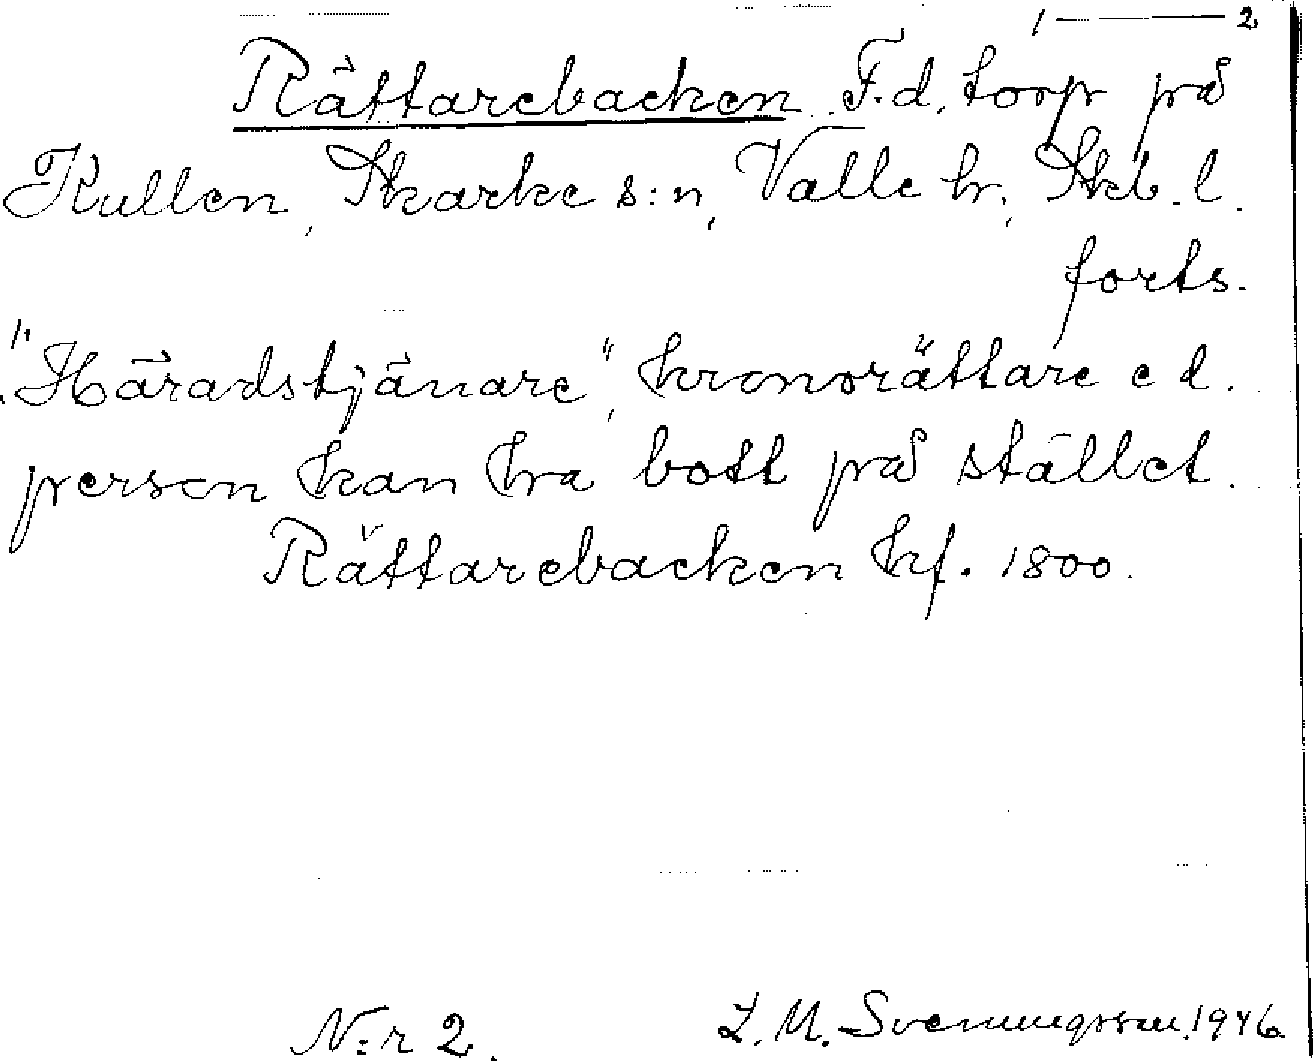 1 — 2
Rättarebacken F.d. torp på
Kullen, Skarke s:n, Valle hr, Skb. l.
forts.
"Häradstjänare", kronorättare e d.
person kan ha bott på stället.
Rättarebacken kf. 1800.
N:r 2. L. M. Svenungsson. 1946